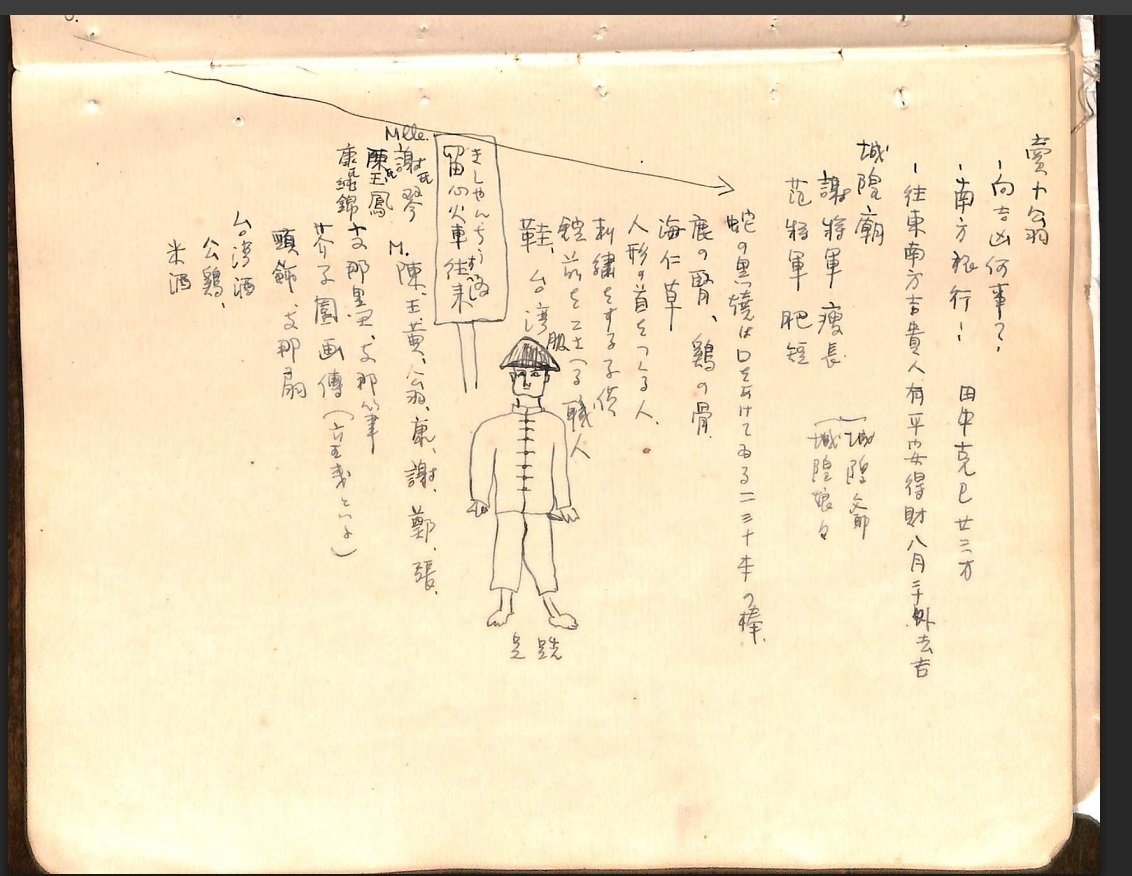 向吉凶何事?
南方旅行! 田中克己 廿三才
往東南方吉貴人有平安得財八月二十外去吉
城隍廟
謝將軍 瘦長
范將軍 肥短
城隍爺
城隍娘々
蛇の黒焼は口をあけてゐる二三十本の棒、
鹿の腎、鷄の骨、
海仁草
人形の首をつくる人、
刺繍をする子供
職人
鞋、台湾服
跣足
きしやんちう
留心火車往来
Mlle. 謝氏琴
陳氏玉鳳
康氏錦
M. 陳、王、黄、翁、康、謝、鄭、張、
支那墨、支那筆
芥子園画傳
頭飾、支那扇
台湾酒
公鷄、
米酒